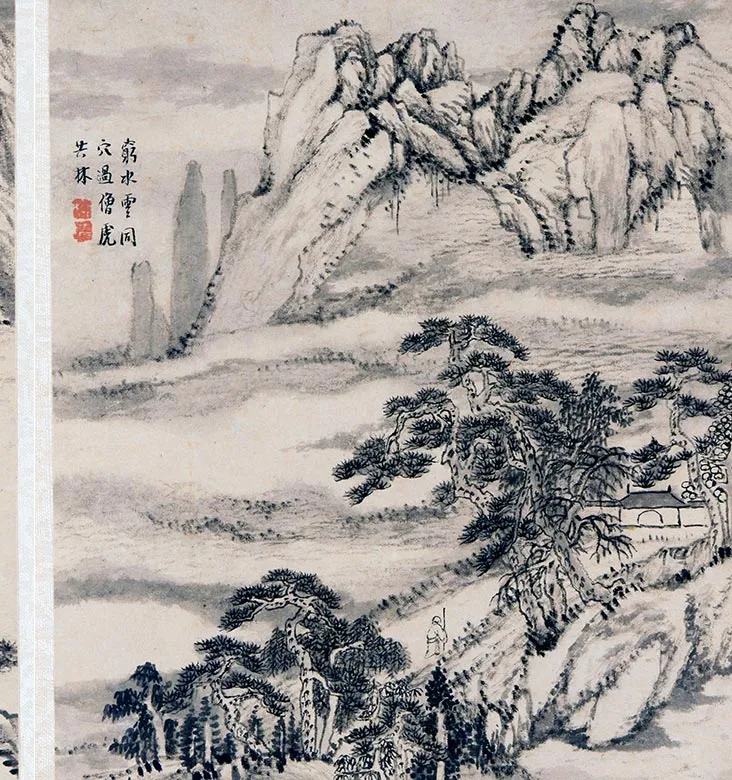 窮水雲同
穴過僧虎
共林